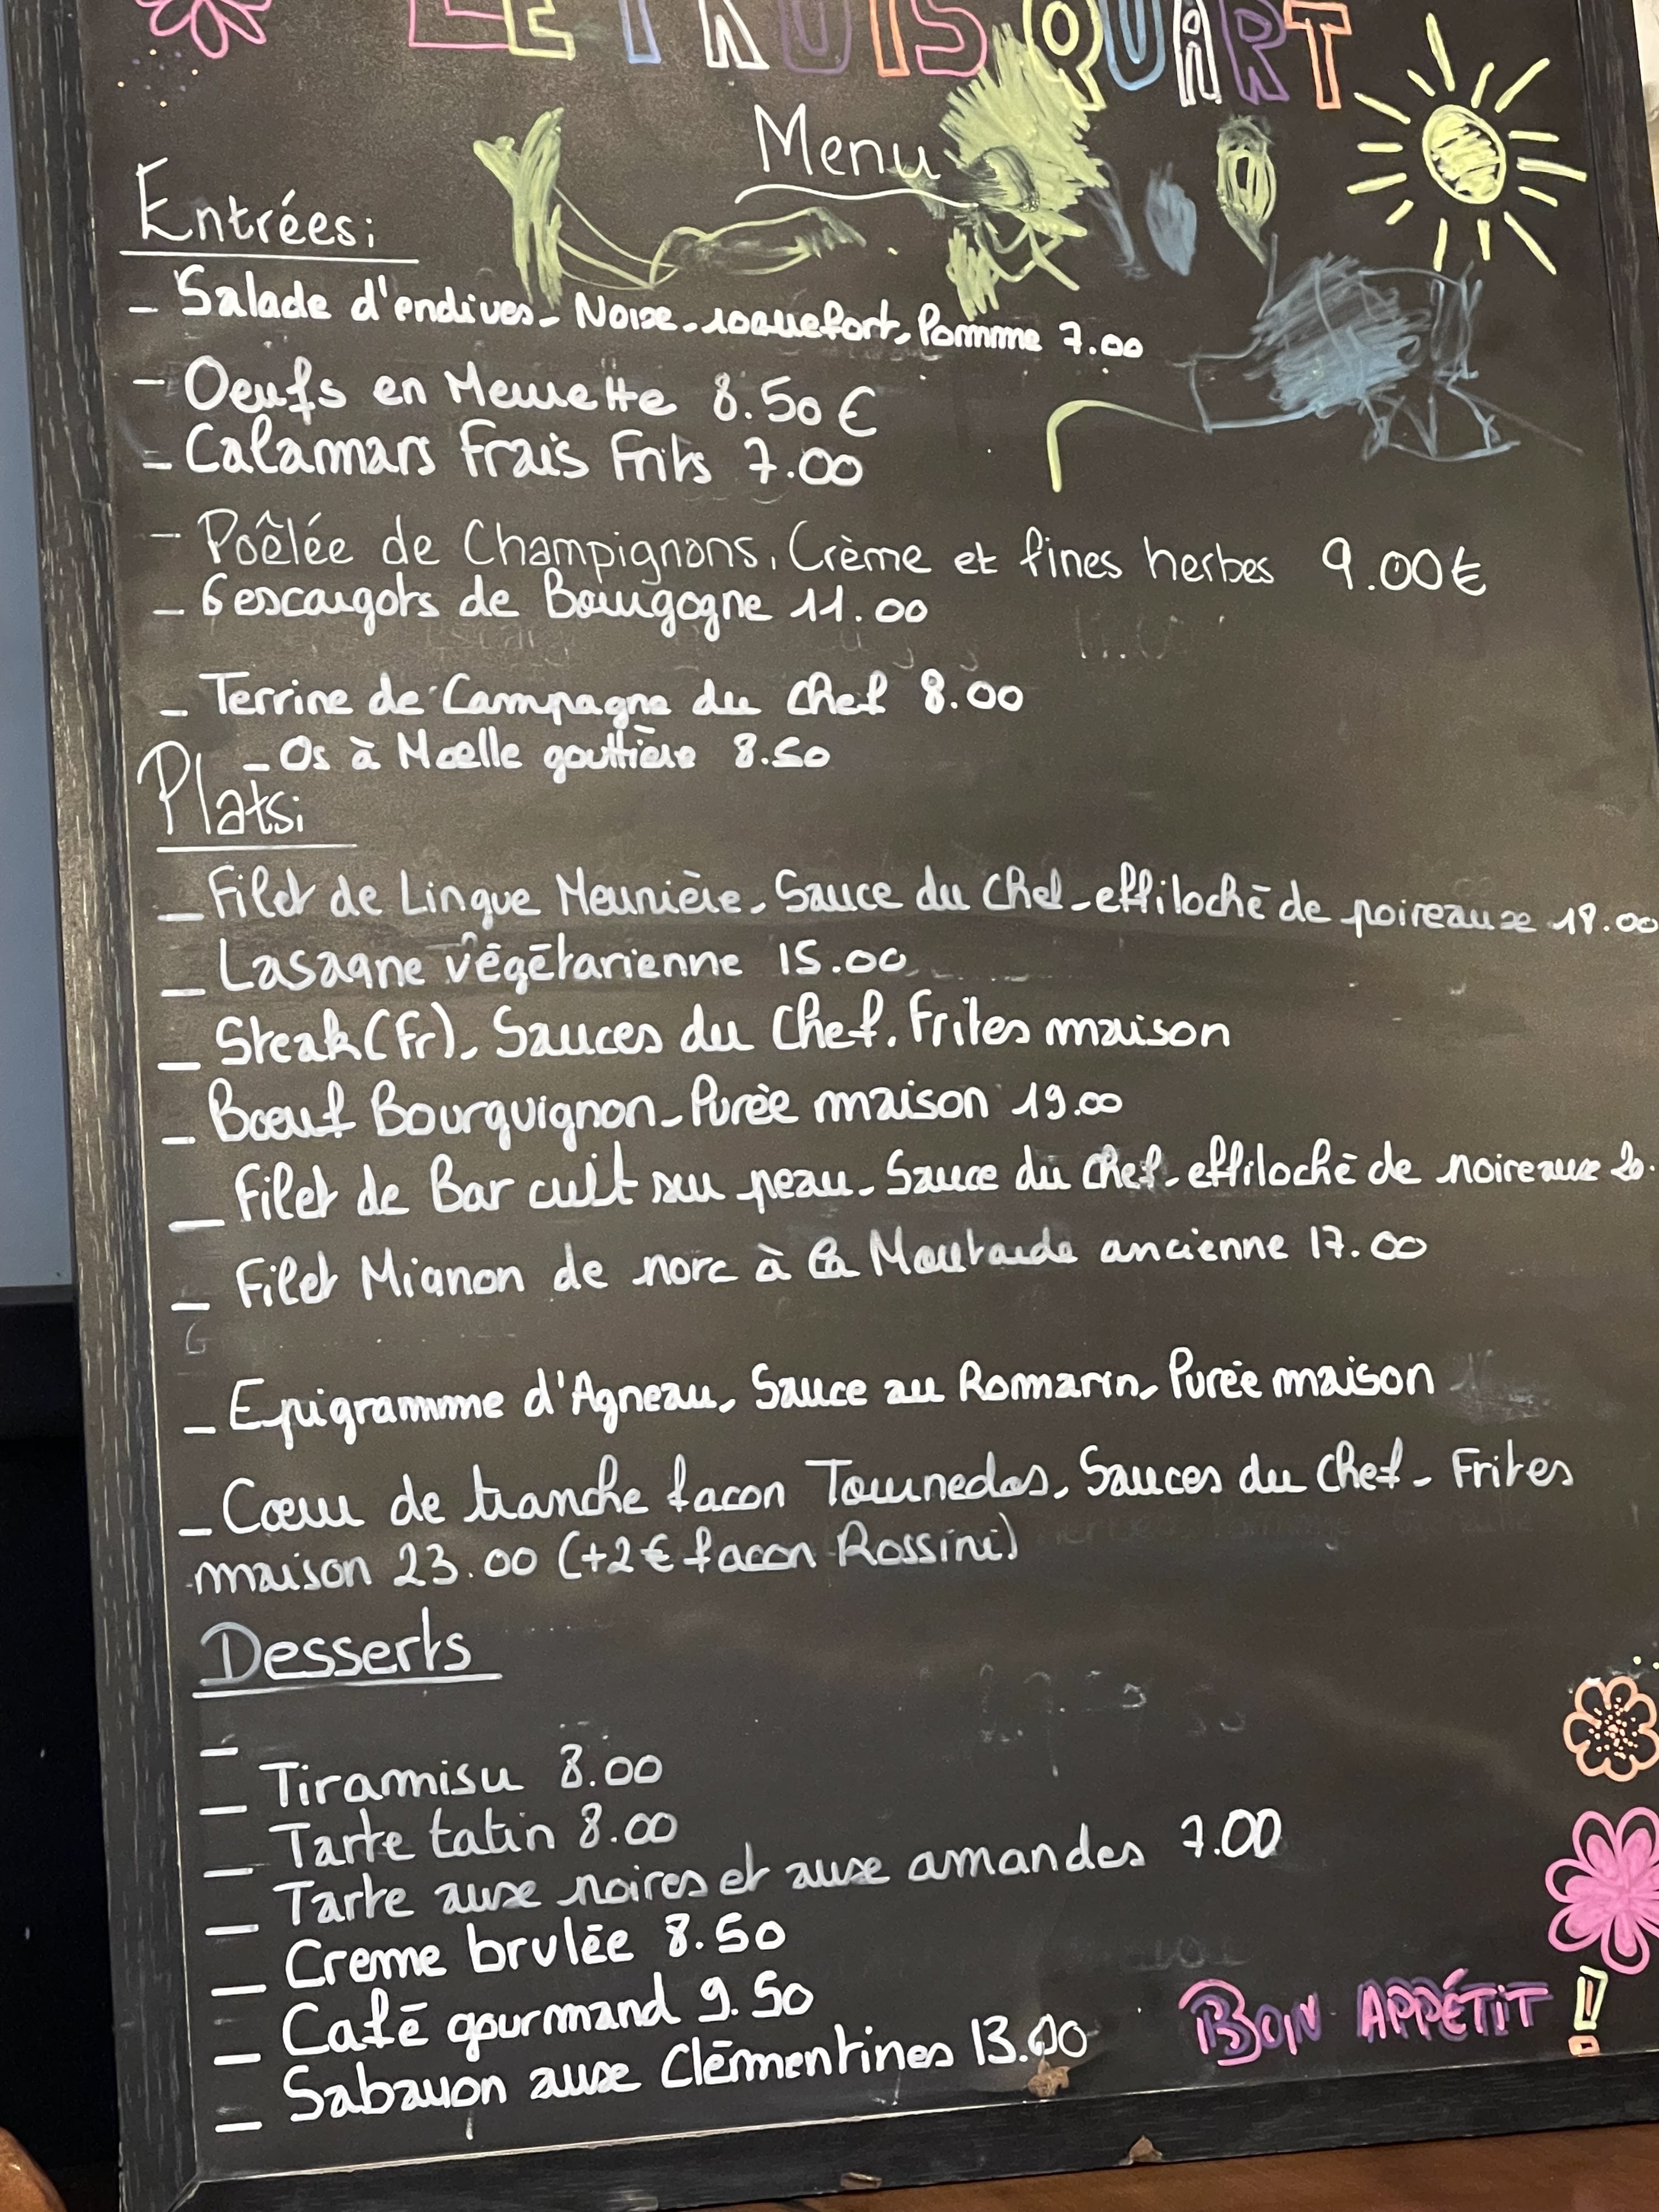 LE TROIS QUART
Menu
Entrées:
- Salade d'endives - Noix - roquefort - Pomme 7.00
- Oeufs en Meurette 8.50 €
- Calamars Frais Frits 7.00
- Poêlée de Champignons, Crème et fines herbes 9.00€
- 6 escargots de Bourgogne 11.00
- Terrine de Campagne du Chef 8.00
- Os à Moelle gouttière 8.50
Plats:
- Filet de Lingue Meunière - Sauce du Chef - effiloché de poireaux 18.00
- Lasagne végétarienne 15.00
- Steak (Fr) - Sauces du Chef. Frites maison
- Bœuf Bourguignon - Purée maison 19.00
- Filet de Bar cuit sur peau - Sauce du Chef - effiloché de poireaux 20.
- Filet Mignon de porc à la Moutarde ancienne 17.00
- Epigramme d'Agneau - Sauce au Romarin - Purée maison
- Cœur de tranche facon Tournedos - Sauces du Chef - Frites
maison 23.00 (+2€ facon Rossini)
Desserts
-
- Tiramisu 8.00
- Tarte tatin 8.00
- Tarte aux poires et aux amandes 7.00
- Creme brulée 8.50
- Café gourmand 9.50
- Sabayon aux Clémentines 13.00
BON APPÉTIT !